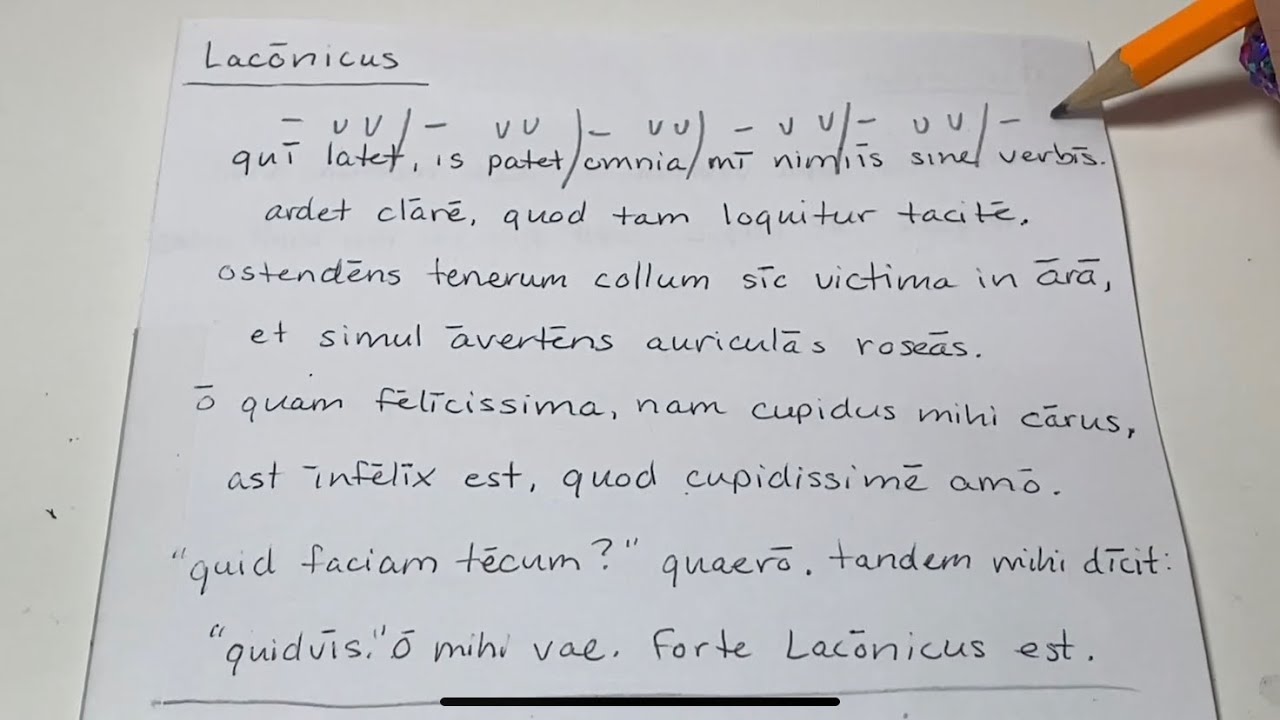 Lacōnicus
– ∪ ∪ / – ∪ ∪ / – ∪ ∪ / – ∪ ∪ / – ∪ ∪ / –
quī latet, is patet/omnia/mī nim/iīs sine/ verbīs.
ardet clārē, quod tam loquitur tacitē.
ostendēns tenerum collum sīc victima in ārā,
et simul āvertēns auriculās roseās.
ō quam fēlīcissima, nam cupidus mihi cārus,
ast īnfēlīx est, quod cupidissimē amō.
"quid faciam tēcum?" quaerō. tandem mihi dīcit:
"quidvīs." ō mihi vae. forte Lacōnicus est.